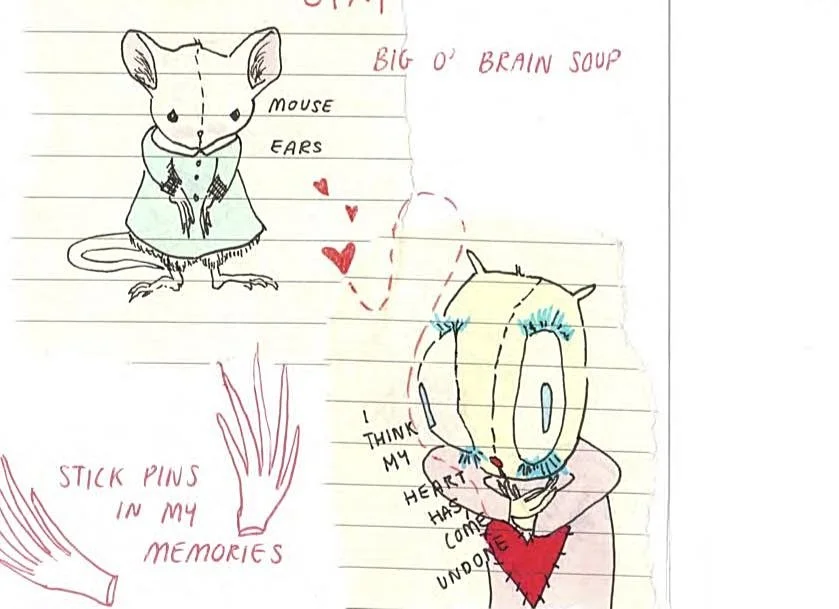 BIG O' BRAIN SOUP
MOUSE
EARS
I
THINK
MY
HEART
HAS
COME
UNDONE
STICK PINS
IN MY
MEMORIES